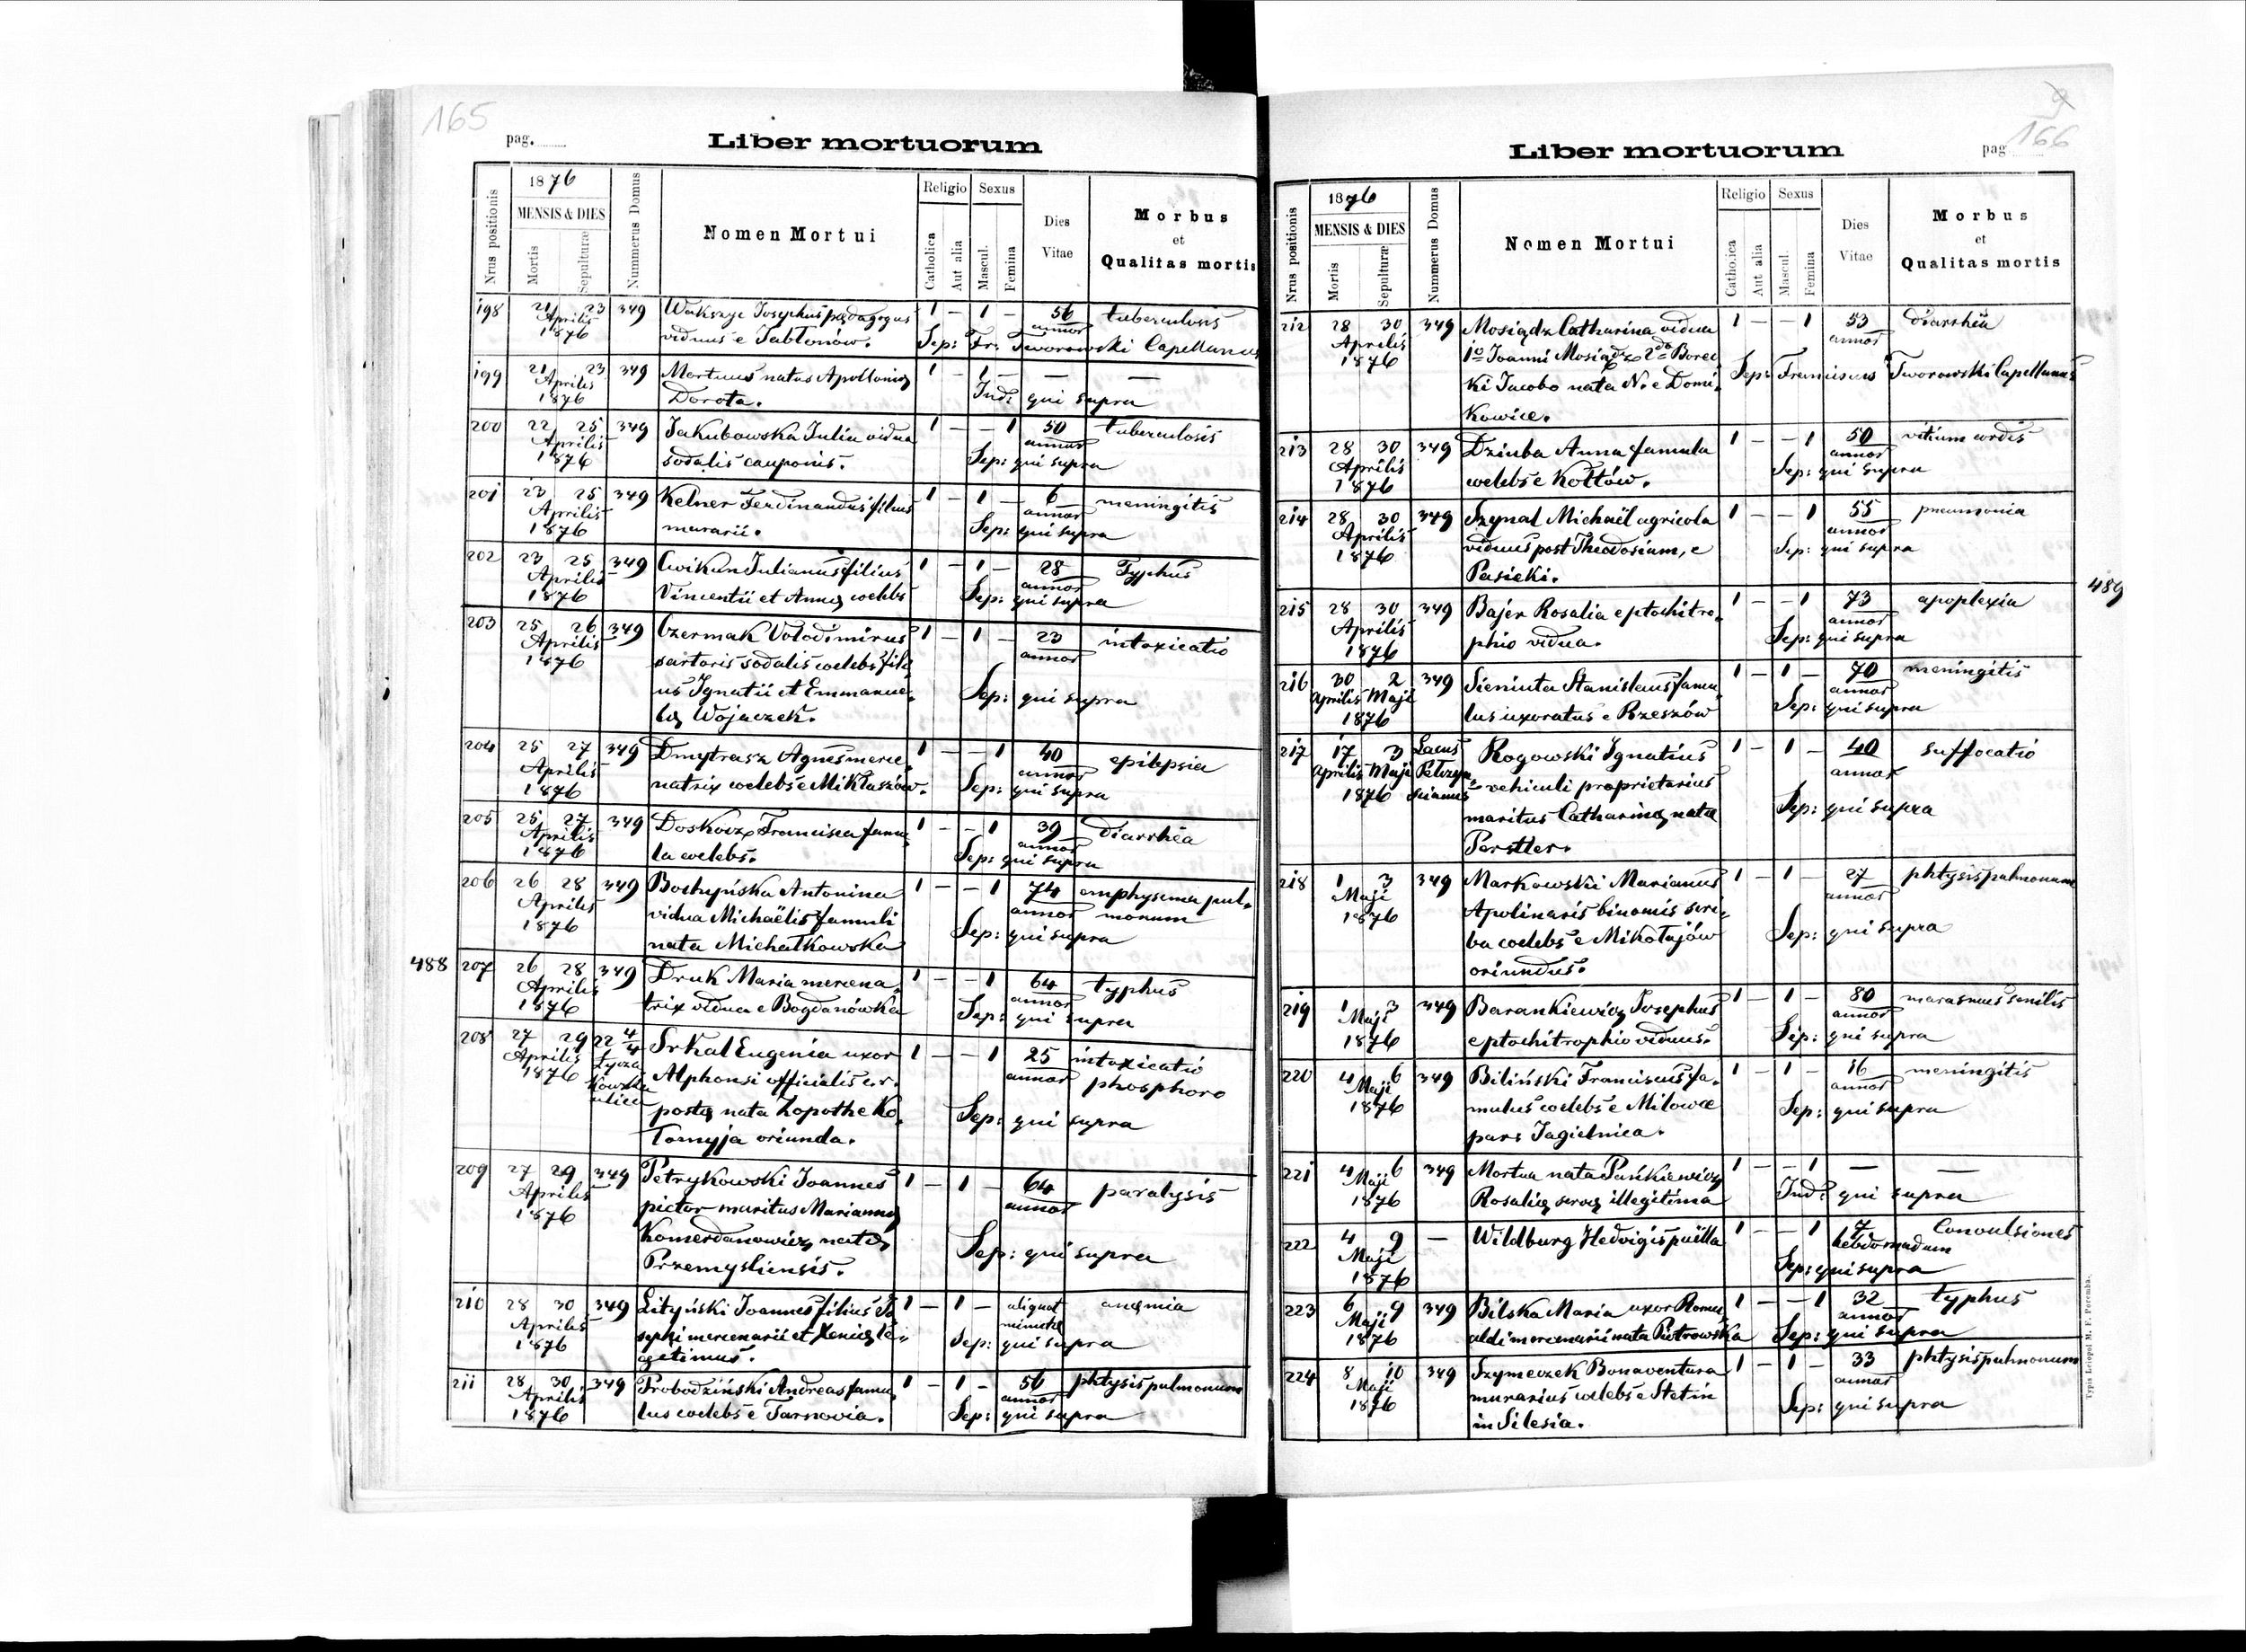 165
pag. ........
Liber mortuorum
Nrus positionis
1876
MENSIS & DIES
Mortis
Sepulturæ
Nummerus Domus
Nomen Mortui
Religio
Catholica
Aut alia
Sexus
Mascul.
Femina
Dies
Vitae
Morbus
et
Qualitas mortis
198 21 23 349 Wakszyc Josephus pædagogus 1 — 1 — 56 tuberculosis
Aprilis viduus e Jabłonów. annor
1876 Sep: Fr: Tworowski Capellanus
199 21 23 349 Mortuus natus Apolloniæ 1 — 1 — — —
Aprilis Dorota. Ind: qui supra
1876
200 22 25 349 Jakubowska Julia vidua 1 — — 1 50 tuberculosis
Aprilis sodalis cauponis. annor
1876 Sep: qui supra
201 23 25 349 Kelner Ferdinandus filius 1 — 1 — 6 meningitis
Aprilis murarii. annor
1876 Sep: qui supra
202 23 25 349 Cwikun Julianus filius 1 — 1 — 28 Typhus
Aprilis Vincentii et Annæ coelebs annor
1876 Sep: qui supra
203 25 26 349 Czermak Volodimirus 1 — 1 — 23 intoxicatio
Aprilis sartoris sodalis coelebs fili annor
1876 us Ignatii et Emmanue- Sep: qui supra
læ Wojaczek.
204 25 27 349 Dmytrasz Agnes merce- 1 — — 1 40 epilepsia
Aprilis natrix coelebs e Mikłaszów. annor
1876 Sep: qui supra
205 25 27 349 Doskocz Francisca famu 1 — — 1 39 diarrhëa
Aprilis la coelebs. annor
1876 Sep: qui supra
206 26 28 349 Bochyńska Antonina 1 — — 1 74 emphysema pul-
Aprilis vidua Michaëlis famuli annor monum
1876 nata Michałkowska Sep: qui supra
488 207 26 28 349 Druk Maria mercena- 1 — — 1 64 typhus
Aprilis trix vidua e Bogdanówka annor
1876 Sep: qui supra
208 27 29 22 4/4 Srkal Eugenia uxor 1 — — 1 25 intoxicatio
Aprilis Łycza Alphonsi officialis c.r. annor phosphoro
1876 kowska postæ nata Zopothe Ko- Sep: qui supra
ulica łomyja oriunda.
209 27 29 349 Petrykowski Joannes 1 — 1 — 64 paralysis
Aprilis pictor maritus Mariannæ annor
1876 Komerdanowicz natæ Sep: qui supra
Przemysliensis.
210 28 30 349 Lityński Joannes filius Jo 1 — 1 — aliquot anæmia
Aprilis sephi mercenarii et Xeniæ le- minutæ
1876 gitimus. Sep: qui supra
211 28 30 349 Probodziński Andreas famu- 1 — 1 — 56 phtysis pulmonum
Aprilis lus coelebs e Tarnovia. annor
1876 Sep: qui supra
9
166
Liber mortuorum
pag ........
Nrus positionis
1876
MENSIS & DIES
Mortis
Sepulturæ
Nummerus Domus
Nomen Mortui
Religio
Catholica
Aut alia
Sexus
Mascul.
Femina
Dies
Vitae
Morbus
et
Qualitas mortis
212 28 30 349 Mosiądz Catharina vidua 1 — — 1 53 diarrhëa
Aprilis 1o Joanni Mosiądz 2do Borec annor
1876 ki Jacobo nata N. e Domi- Sep: Franciscus Tworowski Capellanus
kowice.
213 28 30 349 Dziuba Anna famula 1 — — 1 50 vitium cordis
Aprilis coelebs e Kołtów. annor
1876 Sep: qui supra
214 28 30 349 Szynal Michaël agricola 1 — — 1 55 pneumonia
Aprilis viduus post Theodosiam, e annor
1876 Pasieki. Sep: qui supra
489
215 28 30 349 Bajer Rosalia e ptochitro- 1 — — 1 73 apoplexia
Aprilis phio vidua. annor
1876 Sep: qui supra
216 30 2 349 Sieniuta Stanislaus famu- 1 — 1 — 70 meningitis
Aprilis Maji lus uxoratus e Rzeszów annor
1876 Sep: qui supra
217 17 3 Lacus Rogowski Ignatius 1 — 1 — 40 suffocatio
Aprilis Maji Pełczyn- vehiculi proprietarius annor
1876 scianus maritus Catharinæ natæ Sep: qui supra
Perstler.
218 1 3 349 Markowski Marianus 1 — 1 — 27 phtysis pulmonum
Maji Apolinaris binomis scri- annor
1876 ba coelebs e Mikołajów Sep: qui supra
oriundus.
219 1 3 349 Barankiewicz Josephus 1 — 1 — 80 marasmus senilis
Maji e ptochitrophio viduus. annor
1876 Sep: qui supra
220 4 6 349 Biliński Franciscus fa- 1 — 1 — 16 meningitis
Maji mulus coelebs e Milowce annor
1876 pars Jagielnica. Sep: qui supra
221 4 6 349 Mortua nata Pańkiewicz 1 — — 1 — —
Maji Rosaliæ servæ illegitima Ind: qui supra
1876
222 4 9 — Wildburg Hedvigis puëlla 1 — — 1 7 Convulsiones
Maji hebdomadum
1876 Sep: qui supra
223 6 9 349 Bilska Maria uxor Romu 1 — — 1 32 typhus
Maji aldi mercenarii nata Piotrowska annor
1876 Sep: qui supra
224 8 10 349 Szymeczek Bonaventura 1 — 1 — 33 phtysis pulmonum
Maji murarius coelebs e Stetin annor
1876 in Silesia. Sep: qui supra
Typis Leopol M. F. Poremba.